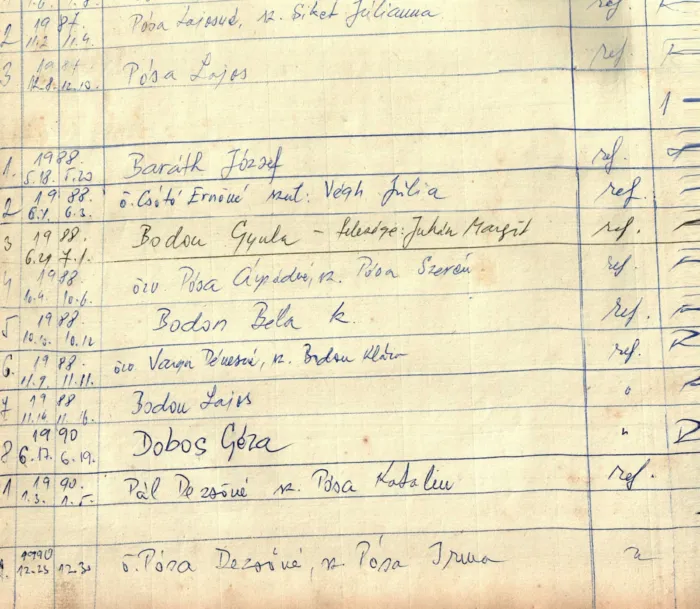 2 1987. Pósa Lajosné, sz. Siket Júlianna ref.
11.2 11.4.
3 Pósa Lajos ref.
12.8. 12.10.
1
1. 1988. Baráth József ref.
5.18. 5.20
2 1988. ö. Csótó Ernőné szül: Végh Júlia ref.
6.1. 6.3.
3 1988. Bodon Gyula – felesége: Juhán Margit ref.
6.29 7.1.
4 1988. özv. Pósa Árpádné, sz. Pósa Szerén ref.
10.4. 10.6.
5 1988. Bodon Béla k. ref.
10.10. 10.12
6. 1988. özv. Varga Dénesné, sz. Bodon Klára ref.
11.9. 11.11.
7 1988 Bodon Lajos "
11.14 11.16.
8 1990 Dobos Géza "
6.17. 6.19.
1 1990. Pál Dezsőné sz. Pósa Katalin ref.
1.3. 1.5.
1990 ö. Pósa Dezsőné, sz. Pósa Irma "
12.23 12.30